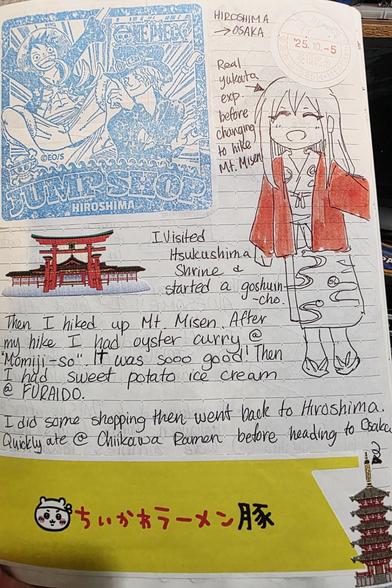 HIROSHIMA
→ OSAKA
'25.10.-5
ONE PIECE
©EO/S
JUMP SHOP
HIROSHIMA
Real
yukata
exp
before
changing
to hike
Mt. Misen
I visited
Itsukushima
Shrine &
started a goshuin
-cho.
Then I hiked up Mt. Misen. After
my hike I had oyster curry @
"Momiji-so". It was sooo good! Then
I had sweet potato ice cream
@ FURAIDO.
I did some shopping then went back to Hiroshima.
Quickly ate @ Chiikawa Ramen before heading to Osaka
ちいかわラーメン豚